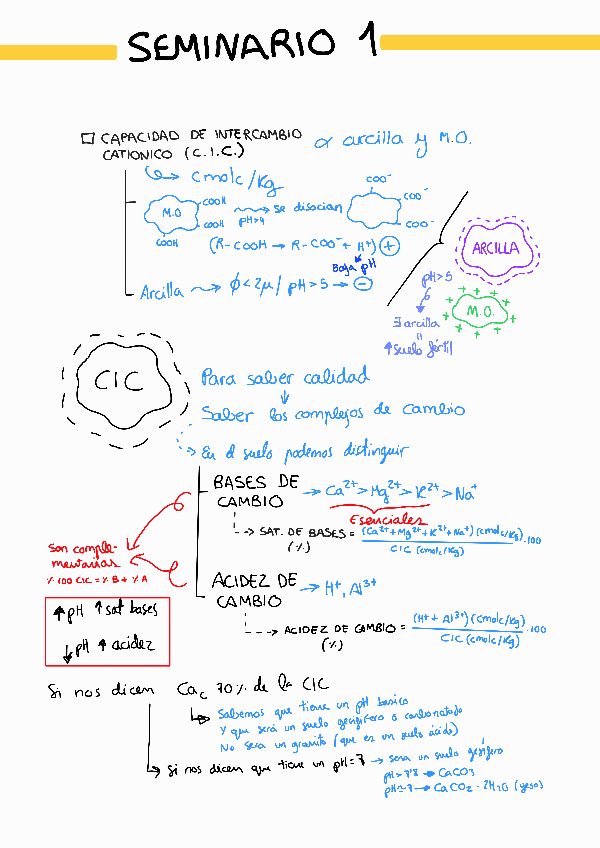 SEMINARIO 1
□ CAPACIDAD DE INTERCAMBIO CATIONICO (C.I.C.) α arcilla y M.O.
↳ cmolc/Kg
M.O COOH COOH COOH pH>4 → se disocian COO⁻ COO⁻ COO⁻
(R-COOH → R-COO⁻ + H⁺) +
Baja pH
Arcilla → ϕ<2μ / pH>5 → −
ARCILLA
pH>5
M.O.
∃ arcilla
=
↑ suelo fértil
CIC
Para saber calidad
↓
Saber los complejos de cambio
→ En el suelo podemos distinguir
BASES DE CAMBIO → Ca²⁺>Mg²⁺>K²⁺>Na⁺
Esenciales
→ SAT. DE BASES = (Ca²⁺+Mg²⁺+K²⁺+Na⁺)(cmolc/Kg) / CIC (cmolc/Kg) .100
(%)
son comple-
mentarias
% 100 CIC = % B + % A
ACIDEZ DE CAMBIO → H⁺, Al³⁺
→ ACIDEZ DE CAMBIO = (H⁺ + Al³⁺)(cmolc/Kg) / CIC (cmolc/Kg) .100
(%)
↑pH ↑sat bases
↓pH ↑ acidez
Si nos dicen Ca꜀ 70% de la CIC
↳ Sabemos que tiene un pH basico
Y que será un suelo gesifero o carbonatado
No sera un granito (que es un suelo ácido)
↳ Si nos dicen que tiene un pH=7 → sera un suelo gesifero
pH>7'8 → CaCO3
pH≃7 → CaCO2 · 2H2O (yeso)